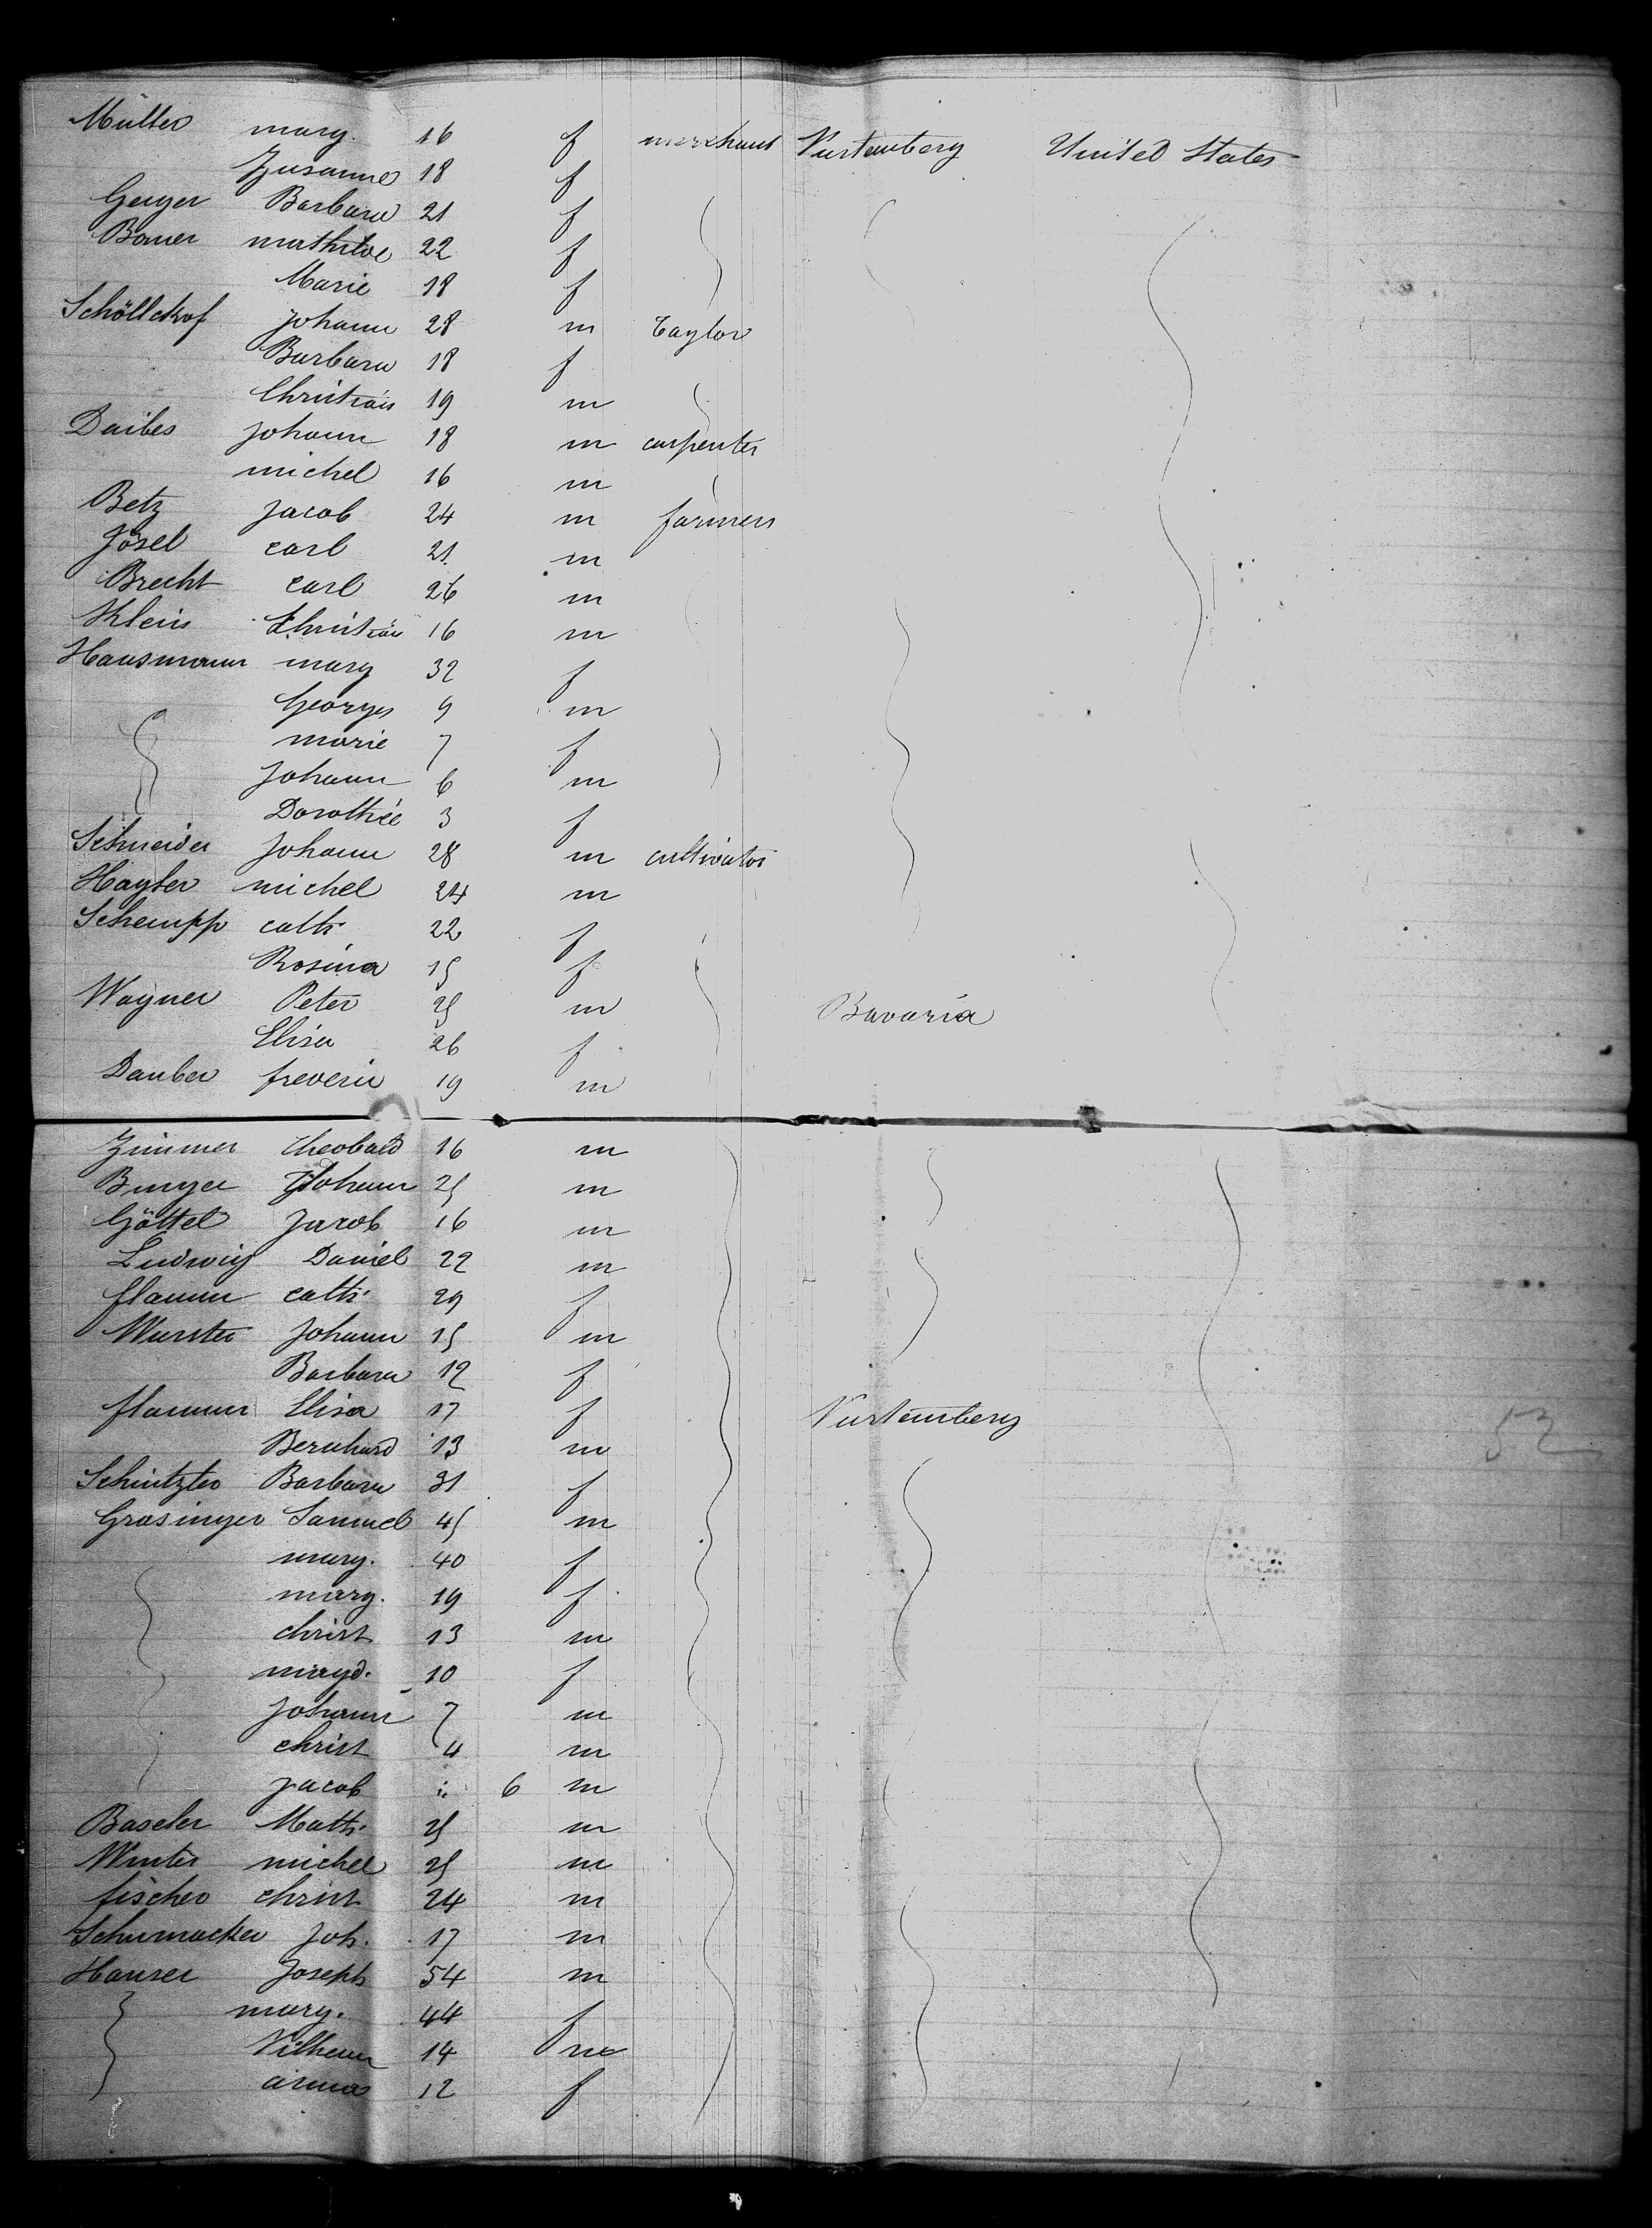 Müller marg. 16 f merchant Vurtemberg United States
Zusanne 18 f
Geiger Barbara 21 f
Bauer mathilde 22 f
Marie 18 f
Schöllckof Johann 28 m Taylor
Barbara 18 f
Christian 19 m
Daiber Johann 18 m carpenter
michel 16 m
Betz Jacob 24 m farmers
Josel carl 21 m
Brecht carl 26 m
Klein Christian 16 m
Hausmann marg 32 f
Georges 9 m
marie 7 f
Johann 6 m
Dorothée 3 f
Schneider Johann 28 m cultivator
Hayler michel 24 m
Schempp cath. 22 f
Rosina 15 f
Wagner Peter 25 m Bavaria
Elisa 26 f
Dauber frederic 19 m
Zimmer theobald 16 m
Burger Johann 25 m
Göttel Jacob 16 m
Ludwig Daniel 22 m
flamm cath. 29 f
Wurster Johann 15 m
Barbara 12 f
flamm Elisa 17 f Vurtemberg
Bernhard 13 m 52
Barbara 31 f
Grasinger Samuel 45 m
marg. 40 f
marg. 19 f
christ 13 m
magd. 10 f
Johann 7 m
christ 4 m
Jacob 6 m
Baseler Math. 25 m
Winter michel 25 m
fischer christ 24 m
Schumacker Joh. 17 m
Hauser Joseph 54 m
marg. 44 f
Vilhem 14 m
anna 12 f